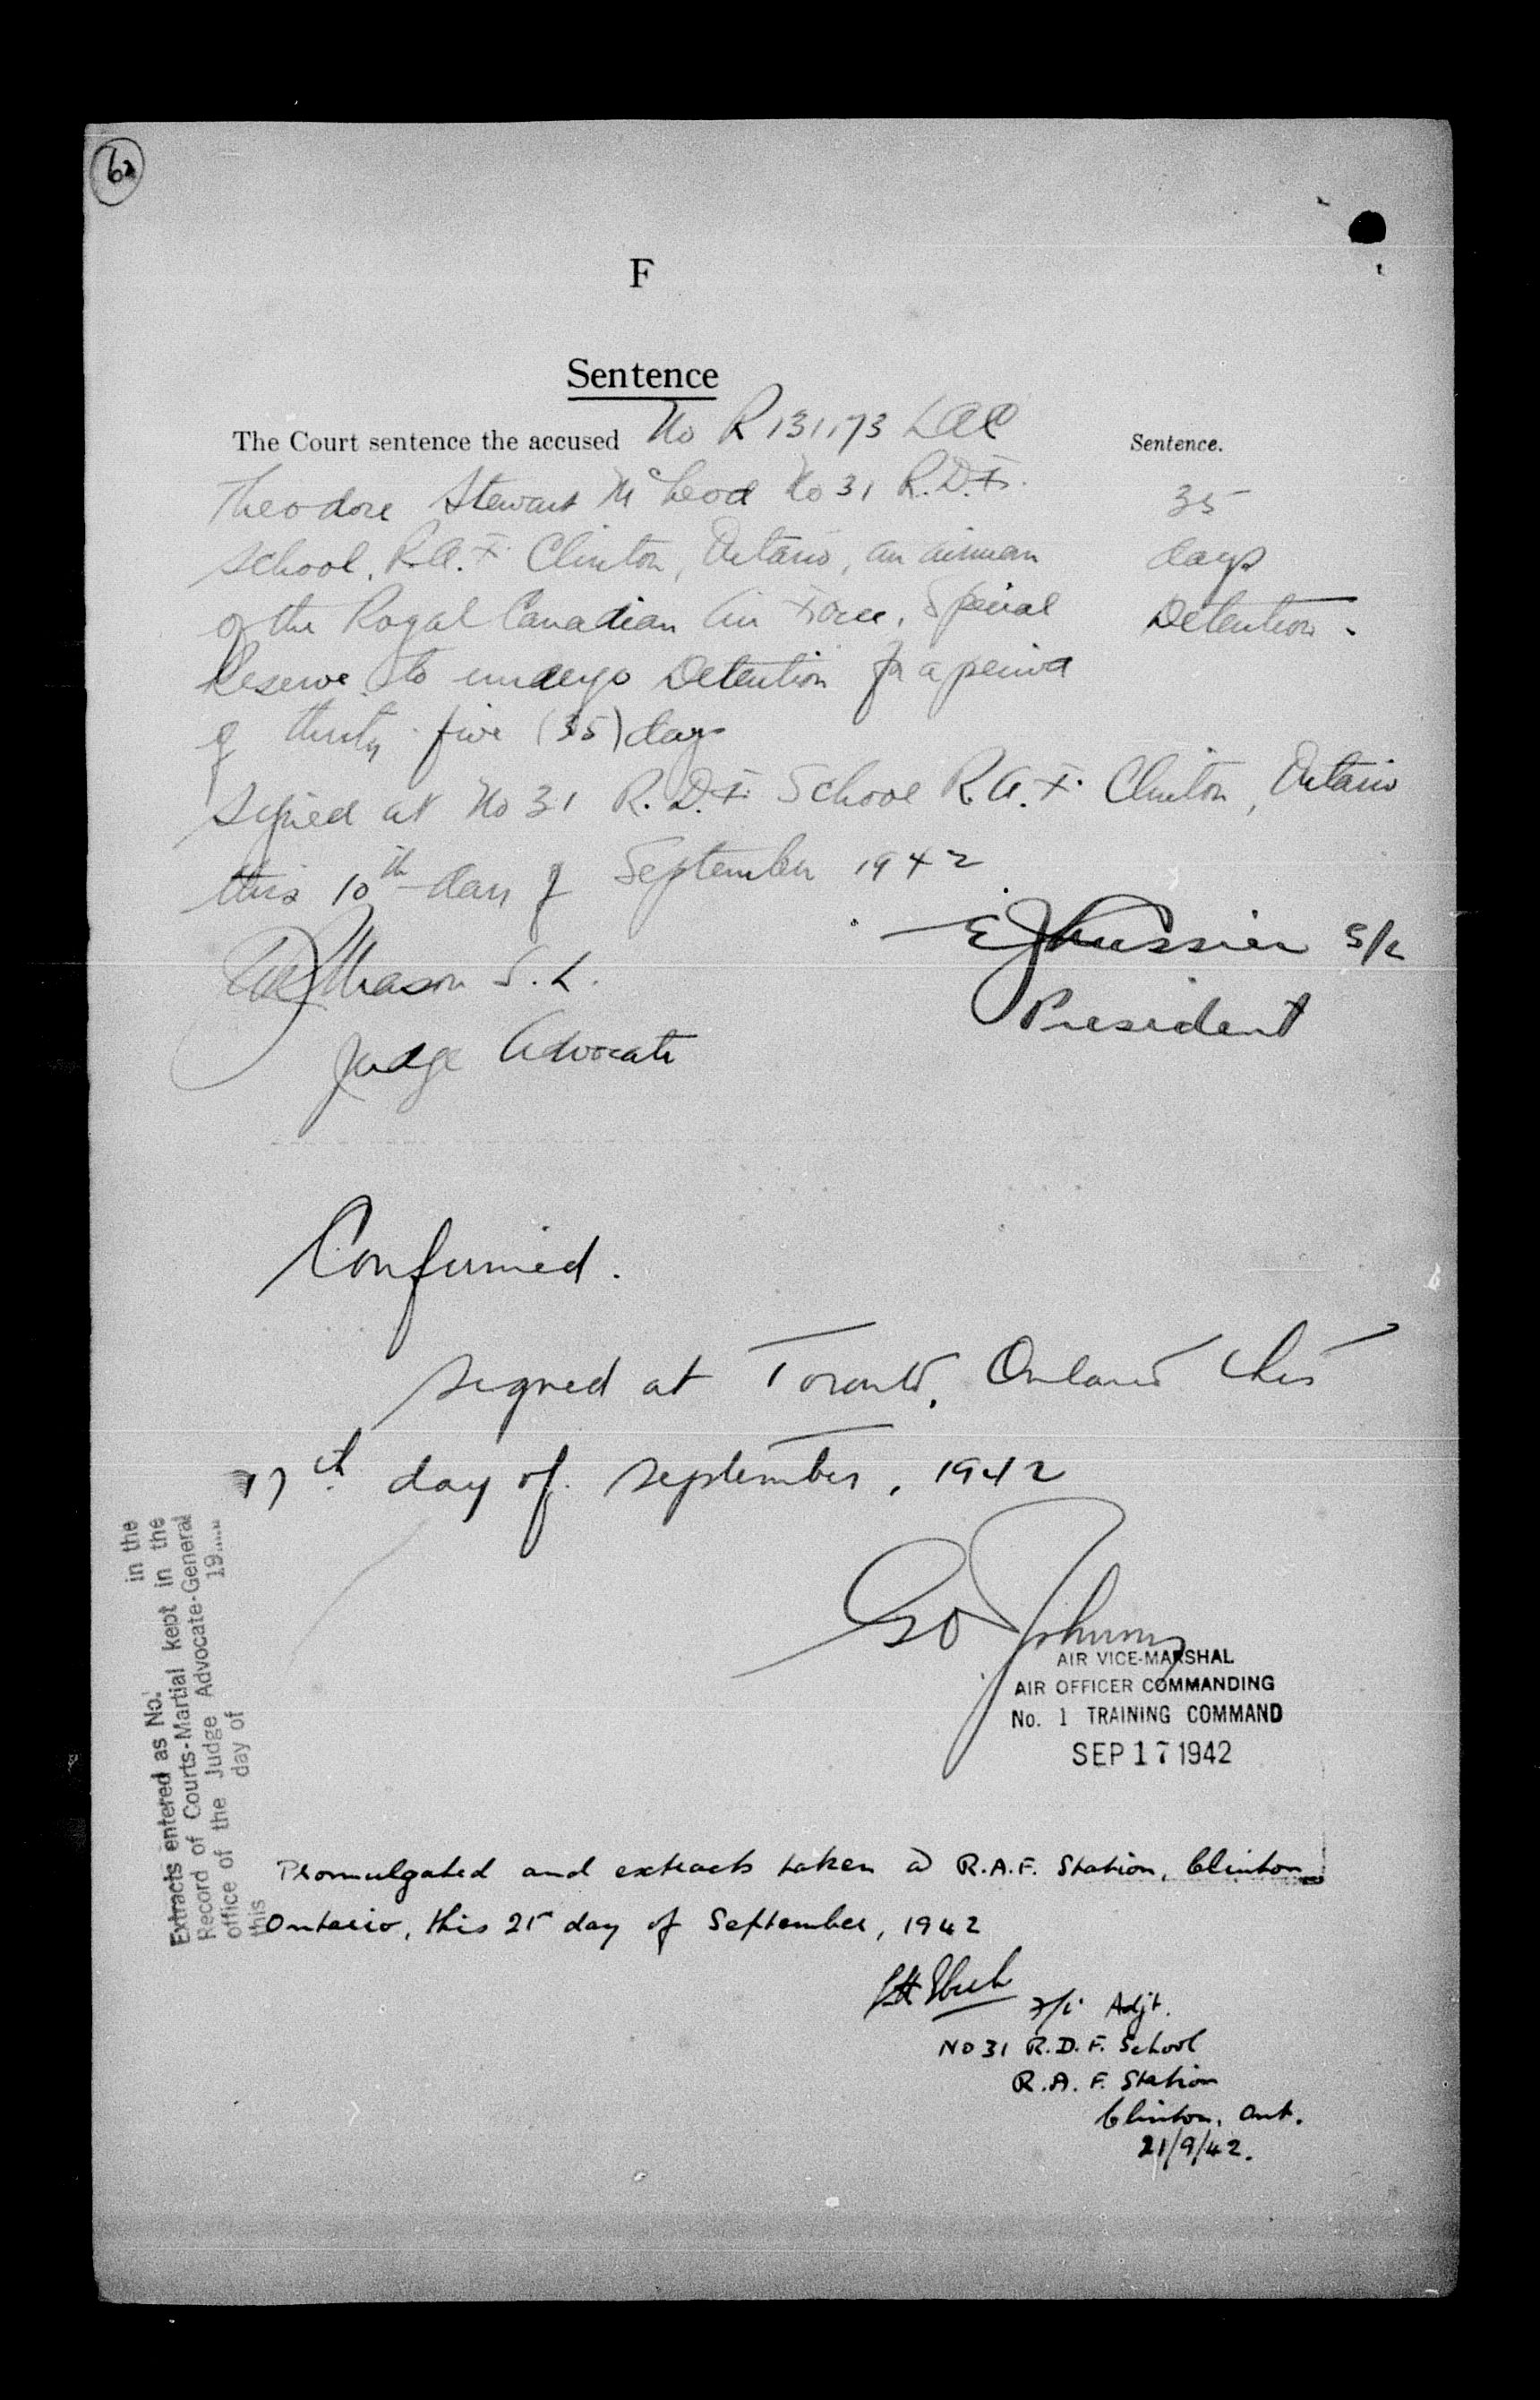 6a
F
Sentence
The Court sentence the accused No R131173 LAC
Sentence.
Theodore Stewart McLeod No 31 R.D.F.
School, R.A.F. Clinton, Ontario, an airman
of the Royal Canadian Air Force, Special
Reserve to undergo Detention for a period
of thirty five (35) days
35
days
Detention.
Signed at No 31 R.D.F. School R.A.F. Clinton, Ontario
this 10th day of September 1942
Mason S.L.
Judge Advocate
S/L
President
Confirmed.
signed at Toronto, Ontario this
17th day of September, 1942
Geo Johnson
AIR VICE-MARSHAL
AIR OFFICER COMMANDING
No. 1 TRAINING COMMAND
SEP 17 1942
Extracts entered as No. in the
Record of Courts-Martial kept in the
office of the Judge Advocate-General
this day of 19.....
Promulgated and extracts taken @ R.A.F. Station, Clinton
Ontario, this 21st day of September, 1942
F/L Adjt.
No 31 R.D.F. School
R.A.F. Station
Clinton, Ont.
21/9/42.